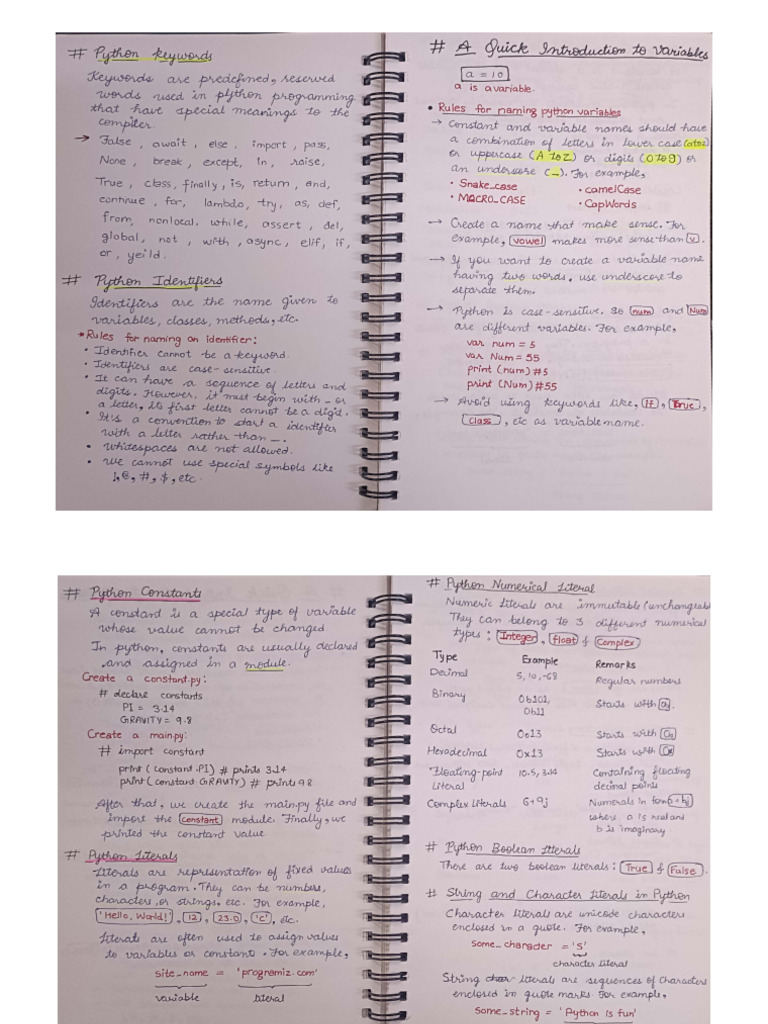 # Python Keywords
Keywords are predefined, reserved
words used in python programming
that have special meanings to the
compiler.
→ False, await, else, import, pass,
None, break, except, in, raise,
True, class, finally, is, return, and,
continue, for, lambda, try, as, def,
from, nonlocal, while, assert, del,
global, not, with, async, elif, if,
or, yeild.
# Python Identifiers
Identifiers are the name given to
variables, classes, methods, etc.
* Rules for naming an identifier:
• Identifier cannot be a keyword.
• Identifiers are case-sensitive.
• It can have a sequence of letters and
digits. However, it must begin with _ or
a letter, Its first letter cannot be a digit.
• It's a convention to start a identifier
with a letter rather than _.
• Whitespaces are not allowed.
• We cannot use special symbols like
!, @, #, $, etc.
# A Quick Introduction to Variables
a = 10
a is a variable.
• Rules for naming python variables
→ Constant and variable names should have
a combination of letters in lower case (a to z)
or uppercase (A to Z) or digits (0 to 9) or
an underscore (_). For example,
• Snake_case • camelCase
• MACRO_CASE • CapWords
→ Create a name that make sense. For
example, vowel makes more sense than v.
→ If you want to create a variable name
having two words, use underscore to
separate them.
→ Python is case-sensitive. So num and Num
are different variables. For example,
var num = 5
var Num = 55
print (num) #5
print (Num) #55
→ Avoid using keywords like, If, True,
class, etc as variable name.
# Python Constants
A constant is a special type of variable
whose value cannot be changed.
In python, constants are usually declared
and assigned in a module.
Create a constant.py:
# declare constants
PI = 3.14
GRAVITY = 9.8
Create a main.py:
# import constant
print (constant.PI) # prints 3.14
print (constant GRAVITY) # prints 9.8
After that, we create the main.py file and
import the constant module. Finally, we
printed the constant value
# Python Literals
Literals are representation of fixed values
in a program. They can be numbers,
characters, or strings, etc. For example,
'Hello, World!', 12, 23.0, 'C', etc.
Literals are often used to assign values
to variables or constants. For example,
site_name = 'programiz.com'
variable literal
# Python Numerical Literal
Numeric literals are immutable (unchangeable)
They can belong to 3 different numerical
types: Integer, float & Complex
Type Example Remarks
Decimal 5, 10, -68 Regular numbers
Binary 0b101, 0b11 Starts with
Octal 0o13 Starts with 0o
Hexadecimal 0x13 Starts with 0x
Floating-point Literal 10.5, 3.14 Containing floating decimal points
Complex Literals 6+9j Numerals in form a+bj
where, a is real and
b is imaginary
# Python Boolean Literals
There are two boolean literals: True & False.
# String and Character Literals in Python
Character literal are unicode characters
enclosed in a quote. For example,
some_character = 'S'
character literal
String literals are sequences of Characters
enclosed in quote marks. For example,
some_string = 'Python is fun'